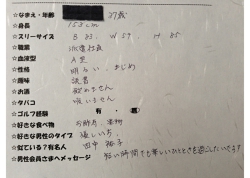 ☆なまえ・年齢 27歳
☆身長 153cm
☆スリーサイズ B 83. W 59. H 85
☆職業 派遣社員
☆血液型 A型
☆性格 明るい、まじめ
☆趣味 読書
☆お酒 飲めません
☆タバコ 吸いません
☆ゴルフ経験 有・無
☆好きな食べ物 お野菜、果物
☆好きな男性のタイプ 優しい方
☆似ている?有名人 田中裕子
☆男性会員さまへメッセージ 短い時間でも楽しいひとときを過ごしたいです